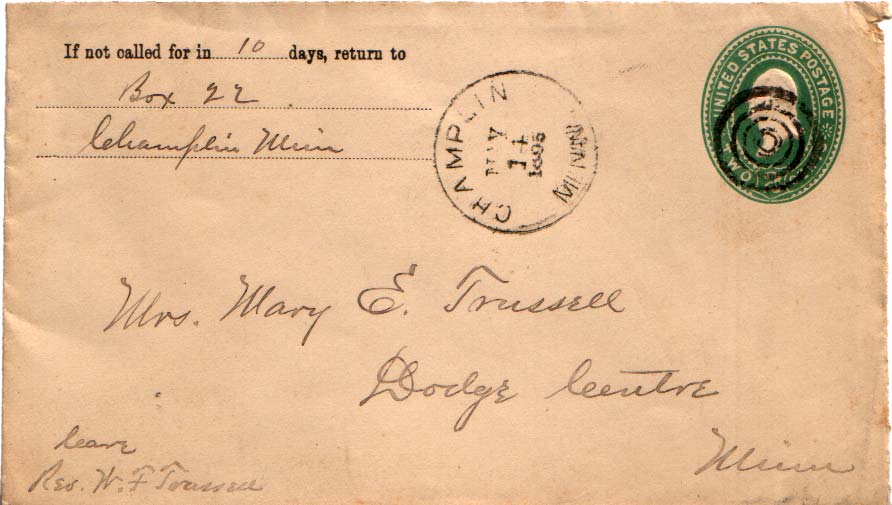 If not called for in 10 days, return to
Box 22
Champlin Minn
CHAMPLIN MINN.
MAY
14
1895
UNITED STATES POSTAGE
TWO
Mrs. Mary E. Trussell
Dodge Centre
Minn
Care
Rev. W. F Trussell